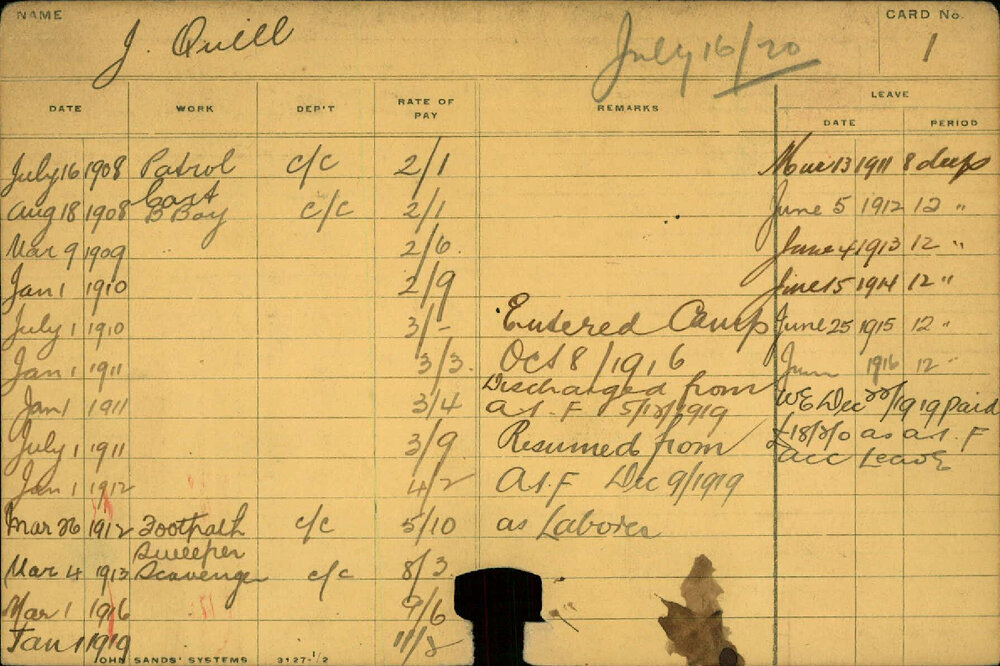 NAME
J. Quill
July 16/20
CARD No.
1
DATE WORK DEP'T RATE OF PAY REMARKS LEAVE
DATE PERIOD
July 16 1908 Patrol c/c 2/1 Mar 13 1911 8 days
Cart
Aug 18 1908 B Boy c/c 2/1 June 5 1912 12 "
Mar 9 1909 2/6 June 4 1913 12 "
Jan 1 1910 2/9 June 15 1914 12 "
July 1 1910 3/- Entered Camp June 25 1915 12 "
Jan 1 1911 3/3 Oct 8/1916 1916 12 "
Discharged from
Jan 1 1911 3/4 A.I.F 5/12/1919 WE Dec /1919 paid
July 1 1911 3/9 Resumed from £18/2/0 as A.I.F
acc Leave
Jan 1 1912 4/2 A.I.F Dec 9/1919
Mar 26 1912 Footpath c/c 5/10 as Laborer
Sweeper
Mar 4 1913 Scavenger c/c 8/3
Mar 1 1916 9/6
Jan 1 1919 11/2
JOHN SANDS' SYSTEMS 3127-1/2